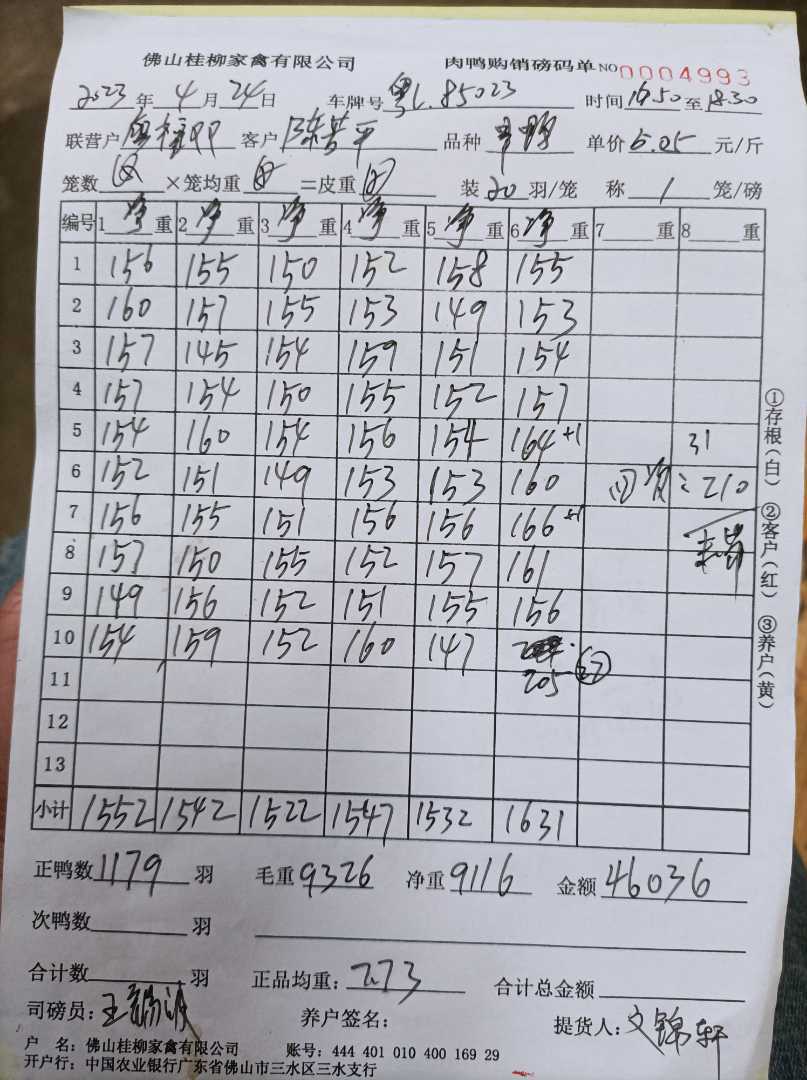 佛山桂柳家禽有限公司 肉鸭购销磅码单 NO 0004993
2023年4月24日 车牌号 粤L.85023 时间16.50至18.30
联营户 客户 陈 平 品种 单价5.05元/斤
笼数 ×笼均重 =皮重 装20羽/笼 称1笼/磅
编号 1净重 2净重 3净重 4净重 5净重 6净重 7重 8重
1 156 155 150 152 158 155
2 160 157 155 153 149 153
3 157 145 154 159 151 154
4 157 154 150 155 152 157
5 154 160 154 156 154 164+1 31
6 152 151 149 153 153 160 :210
7 156 155 151 156 156 166+1
8 157 150 155 152 157 161
9 149 156 152 151 155 156
10 154 159 152 160 147
205
11
12
13
小计 1552 1542 1522 1547 1532 1631
①存根(白) ②客户(红) ③养户(黄)
正鸭数1179羽 毛重9326 净重9116 金额46036
次鸭数 羽
合计数 羽 正品均重:7.73 合计总金额
司磅员:王 波 养户签名: 提货人:文锦轩
户 名:佛山桂柳家禽有限公司 账号:444 401 010 400 169 29
开户行:中国农业银行广东省佛山市三水区三水支行